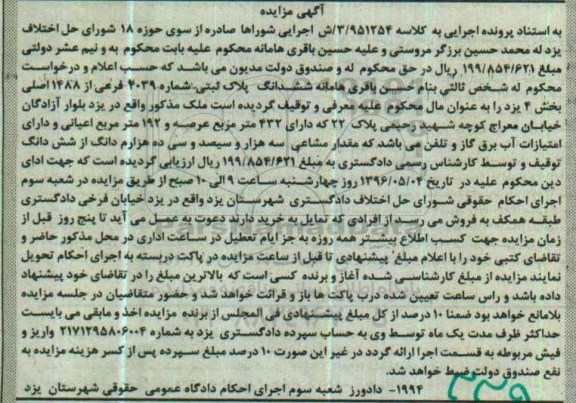 آگهی مزایده
به استناد پرونده اجرایی به کلاسه ۳/۹۵۱۲۵۴/ش اجرایی شوراها صادره از سوی حوزه ۱۸ شورای حل اختلاف
یزد له محمد حسین برزگر مروستی و علیه حسین باقری هامانه محکوم علیه بابت محکوم به و نیم عشر دولتی
مبلغ ۱۹۹/۸۵۴/۶۲۱ ریال در حق محکوم له و صندوق دولت مدیون می باشد که حسب اعلام و درخواست
محکوم له شخص ثالثی بنام حسین باقری هامانه ششدانگ پلاک ثبتی شماره ۴۰۳۹ فرعی از ۱۴۸۸ اصلی
بخش ۴ یزد را به عنوان مال محکوم علیه معرفی و توقیف گردیده است ملک مذکور واقع در یزد بلوار آزادگان
خیابان معراج کوچه شهید رحیمی پلاک ۲۲ که دارای ۴۳۲ متر مربع عرصه و ۱۹۲ متر مربع اعیانی و دارای
امتیازات آب برق گاز و تلفن می باشد که مقدار مشاعی سه هزار و سیصد و سی ده هزارم دانگ از شش دانگ
توقیف و توسط کارشناس رسمی دادگستری به مبلغ ۱۹۹/۸۵۴/۶۲۱ ریال ارزیابی گردیده است که جهت ادای
دین محکوم علیه در تاریخ ۱۳۹۶/۰۵/۰۴ روز چهارشنبه ساعت ۹ الی ۱۰ صبح از طریق مزایده در شعبه سوم
اجرای احکام حقوقی شورای حل اختلاف دادگستری شهرستان یزد واقع در یزد خیابان فرخی دادگستری
طبقه همکف به فروش می رسد از افرادی که تمایل به خرید دارند دعوت به عمل می آید تا پنج روز قبل از
زمان مزایده جهت کسب اطلاع بیشتر همه روزه به جز ایام تعطیل در ساعت اداری در محل مذکور حاضر و
تقاضای کتبی خود را با اعلام مبلغ پیشنهادی تا قبل از ساعت مزایده در پاکت دربسته به اجرای احکام تحویل
نمایند مزایده از مبلغ کارشناسی شده آغاز و برنده کسی است که بالاترین مبلغ را در تقاضای خود پیشنهاد
داده باشد و راس ساعت تعیین شده درب پاکت ها باز و قرائت خواهد شد و حضور متقاضیان در جلسه مزایده
بلامانع خواهد بود ضمنا ۱۰ درصد از کل مبلغ پیشنهادی فی المجلس از برنده مزایده اخذ و مابقی می بایست
حداکثر ظرف مدت یک ماه توسط وی به حساب سپرده دادگستری یزد به شماره ۲۱۷۱۲۹۵۸۰۶۰۰۴ واریز و
فیش مربوطه به قسمت اجرا ارائه گردد در غیر این صورت ۱۰ درصد مبلغ سپرده پس از کسر هزینه مزایده به
نفع صندوق دولت ضبط خواهد شد.
۱۹۹۴- دادورز شعبه سوم اجرای احکام دادگاه عمومی حقوقی شهرستان یزد